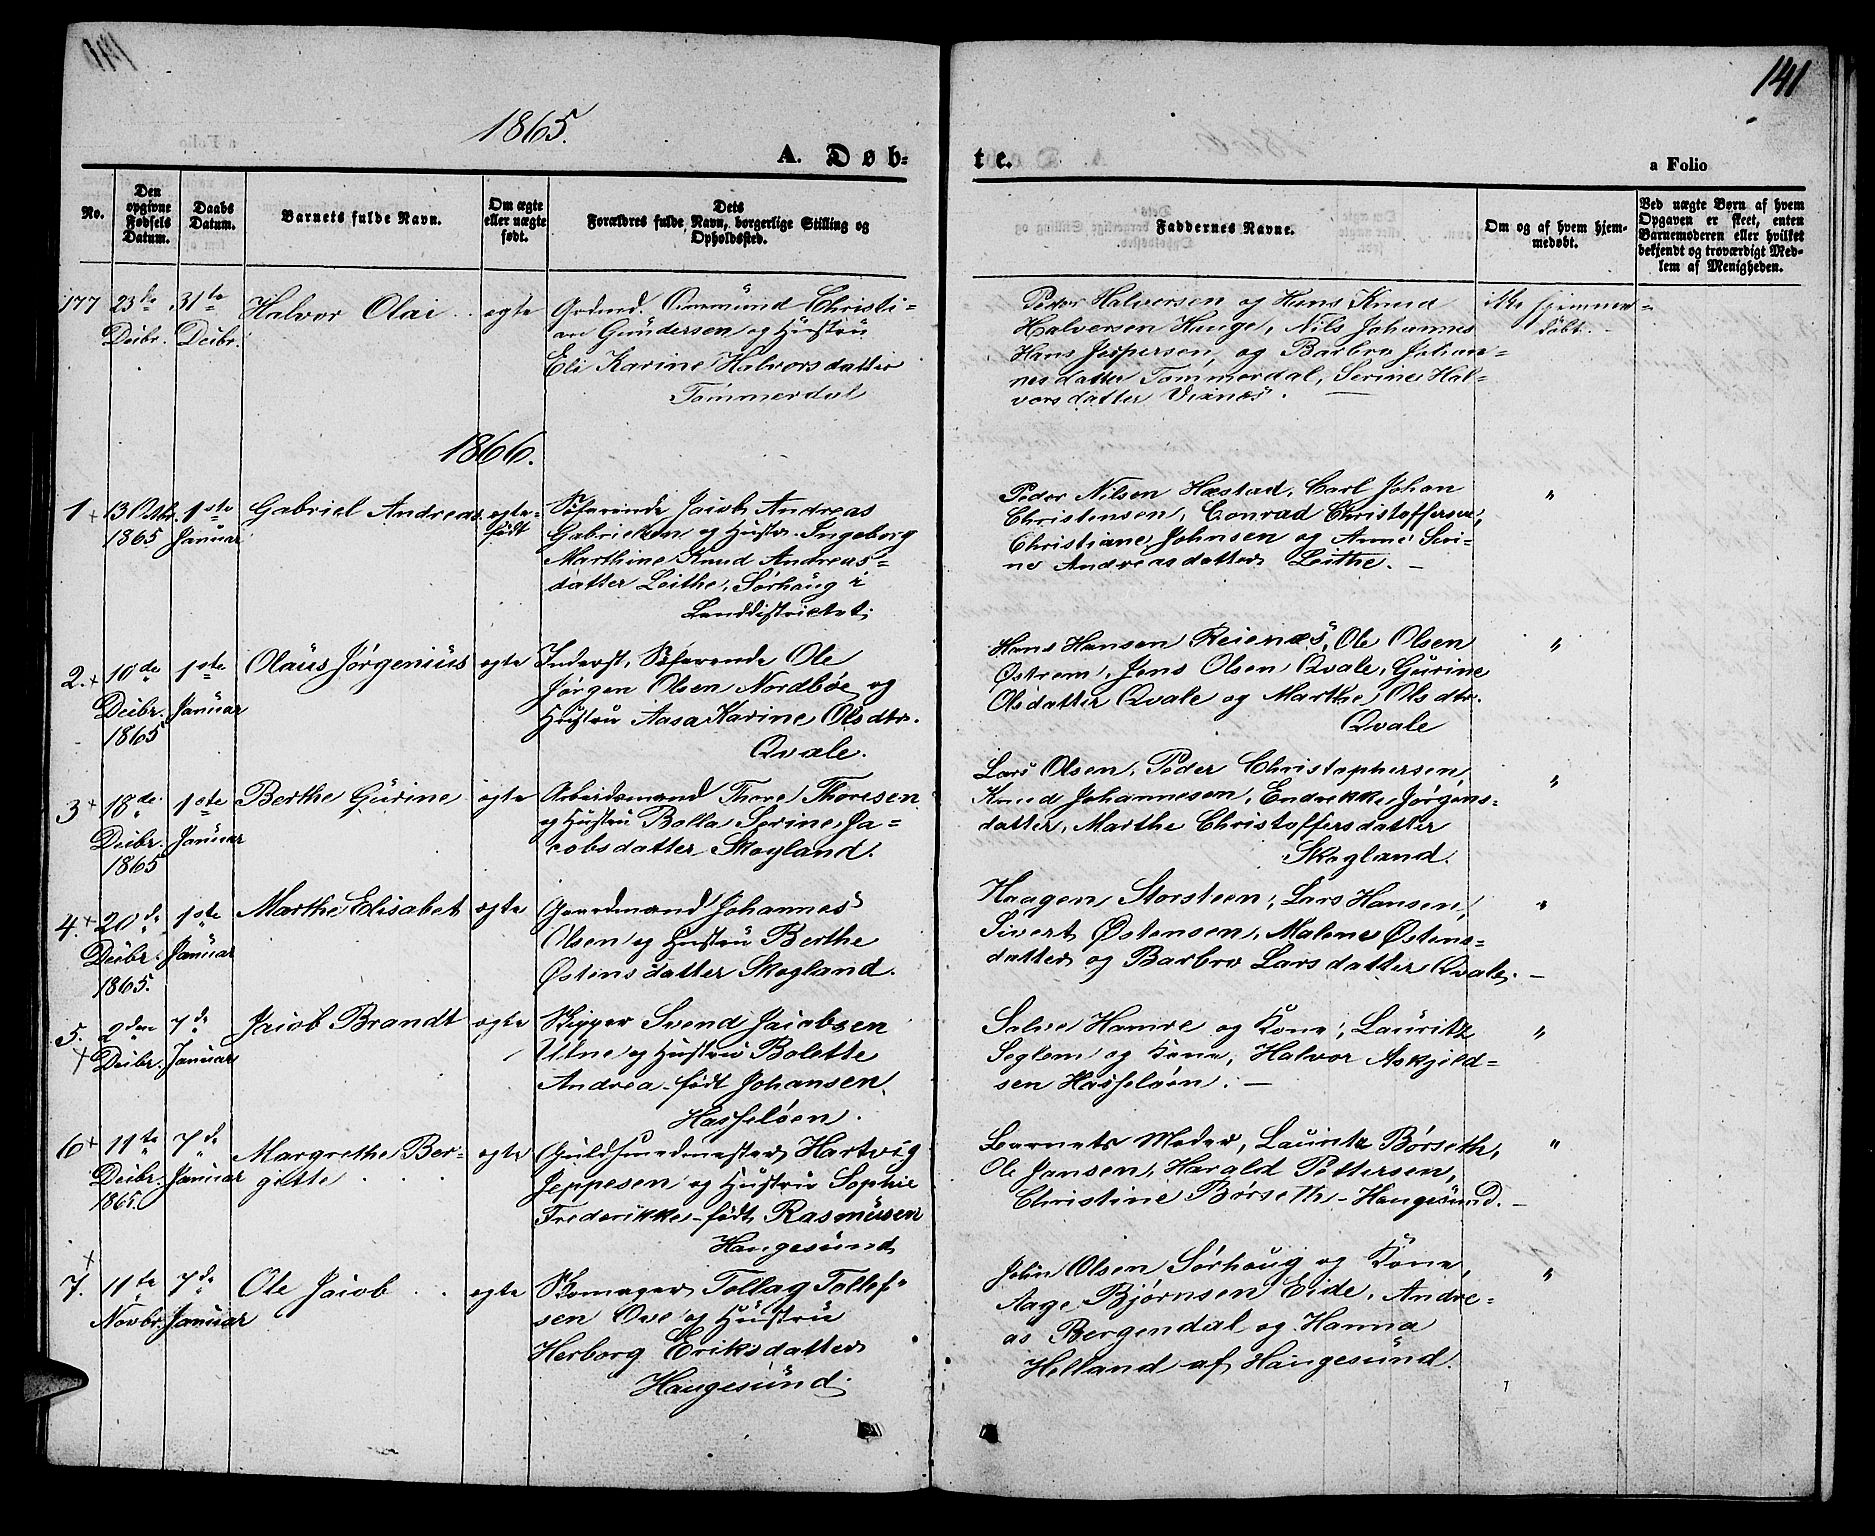 141
1865.
A. Døb-
te.
a Folio
No.
Den opgivne Fødsels Datum.
Daabs Datum.
Barnets fulde Navn.
Om ægte eller uægte født.
Dets Forældres fulde Navn, borgerlige Stilling og Opholdssted.
Faddernes Navne.
Om og af hvem hjemmedøbt.
Ved uægte Børn af hvem Opgaven er skeet, enten Barnemoderen eller hvilket bekjendt og troværdigt Medlem af Menigheden.
177 23de Decbr. 31te Decbr. Halvor Olai ægte
Grdmd. Ommund Christi-
an Gundersen og Hustru
Eli Karine Halvorsdatter
Tømmerdal
Peder Halversen og Hans Knud
Halversen Hauge, Nils Johannes
Hans Jespersen, og Barbro Johan-
nesdatter Tømmerdal, Serine Hal-
vorsdatter Vixnæs.
ikke hjemme-
døbt.
1866.
1 13 Octbr. 1865 1ste Januar Gabriel Andreas ægte født
Søfarende Jacob Andreas
Gabrielsen og Hustr. Ingeborg
Marthine Knud Andreas-
datter Leithe, Sørhaug i
Landdistrictet.
Peder Nilsen Hæstad, Carl Johan
Christensen, Conrad Christoffersen,
Christiane Johnsen og Anne Seri-
ne Andreasdatter Leithe.
"
2. 10de Decbr. 1865 1ste Januar Olaus Jørgenius ægte
Inderst, Søfarende Ole
Jørgen Olsen Nordbøe og
Hustru Aasa Karine Olsdtr.
Qvale.
Hans Hansen Reienæs, Ole Olsen
Østrem, Jens Olsen Qvale, Gurine
Olsdatter Qvale og Marthe Olsdtr.
Qvale
"
3 18de Decbr. 1865 1ste Januar Berthe Gurine ægte
Arbeidsmand Thore Thoresen
og Hustru Bolla Serine Ja-
cobsdatter Skogland.
Lars Olsen, Peder Christophersen,
Knud Johannesen, Endrekke Jørgens-
datter, Marthe Christoffersdatter
Skogland.
"
4. 20de Decbr. 1865. 1ste Januar Marthe Elisabet ægte
Gaardmand Johannes
Olsen og Hustru Berthe
Østensdatter Skogland.
Haagen Storsteen, Lars Hansen,
Sivert Østensen, Malene Østens-
datter og Barbro Larsdatter Qvale.
"
5. 2den Decbr. 7de Januar Jacob Brandt ægte
Skipper Svend Jacobsen
Utne og Hustru Bolette
Andrea født Johansen,
Hasseløen.
Salve Hamre og Kone, Lauritz
Seglem og Kone, Halvor Askjeld-
sen Hasseløen.
"
6 11te Decbr. 1865. 7de Januar Margrethe Ber-
gitte ægte
Guldsmedmester Hartvig
Jeppesen og Hustru Sophie
Frederikke født Rasmussen
Haugesund
Barnets Moder, Lauritz Børseth,
Ole Jansen, Harald Pettersen,
Christine Børseth - Haugesund.
"
7. 11te Novbr. 7de Januar Ole Jacob ægte
Skomager Tollag Tollef-
sen Ove og Hustru
Herborg Eriksdatter
Haugesund.
John Olsen Sørhaug og Kone,
Aage Bjørnsen Eide, Andre-
as Bergendal og Hanna
Helland af Haugesund.
"